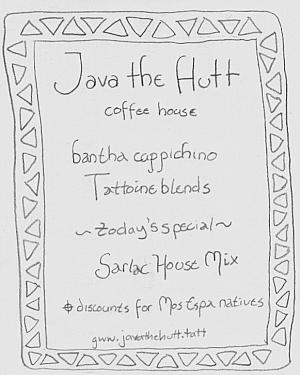 Java the Hutt
coffee house
bantha cappichino
Tattoine blends
~ today's special ~
Sarlac House Mix
discounts for Mos Espa natives
gww.javathehutt.tatt